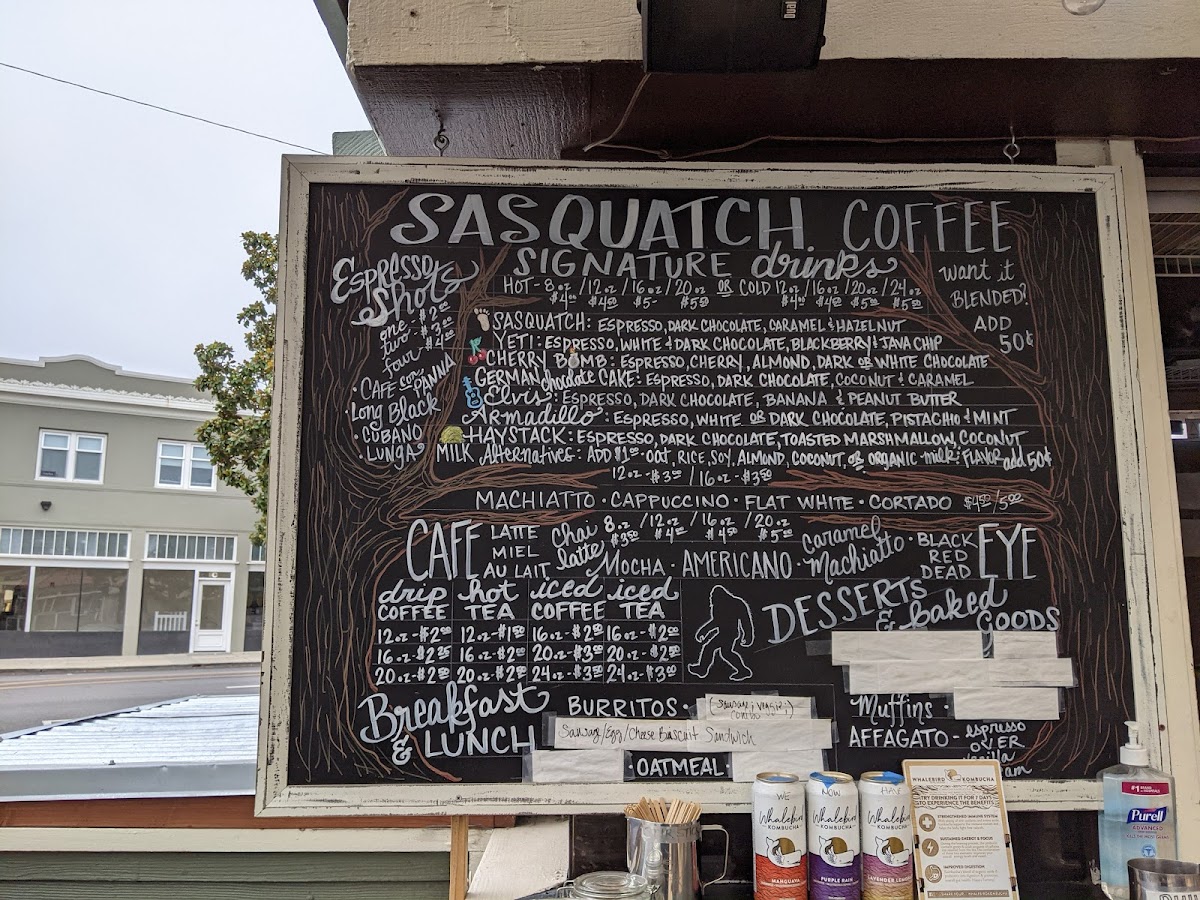 Dual
SASQUATCH COFFEE
SIGNATURE drinks
HOT - 8oz / 12oz / 16oz / 20oz OR COLD 12oz / 16oz / 20oz / 24oz
$4⁰⁰ $4⁵⁰ $5- $5⁵⁰
Espresso Shots
one - $2⁰⁰
two - $3⁰⁰
four - $4⁰⁰
• CAFE con PANNA
• Long Black
• CUBANO
• LUNGA
want it
BLENDED?
ADD
50¢
SASQUATCH: ESPRESSO, DARK CHOCOLATE, CARAMEL & HAZELNUT
YETI: ESPRESSO, WHITE & DARK CHOCOLATE, BLACKBERRY & JAVA CHIP
CHERRY BOMB: ESPRESSO, CHERRY, ALMOND, DARK OR WHITE CHOCOLATE
GERMAN chocolate CAKE: ESPRESSO, DARK CHOCOLATE, COCONUT & CARAMEL
Elvis: ESPRESSO, DARK CHOCOLATE, BANANA & PEANUT BUTTER
Armadillo: ESPRESSO, WHITE OR DARK CHOCOLATE, PISTACHIO & MINT
HAYSTACK: ESPRESSO, DARK CHOCOLATE, TOASTED MARSHMALLOW, COCONUT
MILK Alternatives: ADD $1⁰⁰ - OAT, RICE, SOY, ALMOND, COCONUT, OR ORGANIC milk; FLAVOR add 50¢
12oz - $3⁵⁰ / 16oz - $3⁵⁰
MACHIATTO • CAPPUCCINO • FLAT WHITE • CORTADO $4⁵⁰/5⁰⁰
CAFE
LATTE
MIEL
AU LAIT
Chai latte
8oz / 12oz / 16oz / 20oz
$3⁵⁰ $4- $4⁵⁰ $5-
Mocha • AMERICANO • Caramel Machiatto •
BLACK
RED
DEAD
EYE
drip COFFEE
12oz - $2⁰⁰
16oz - $2²⁵
20oz - $2⁵⁰
hot TEA
12oz - $1⁵⁰
16oz - $2⁰⁰
20oz - $2⁵⁰
iced COFFEE
16oz - $2⁵⁰
20oz - $3⁰⁰
24oz - $3⁵⁰
iced TEA
16oz - $2⁰⁰
20oz - $2⁵⁰
24oz - $3⁰⁰
DESSERTS
& baked
GOODS
Muffins •
AFFAGATO - espresso
OVER
Breakfast
& LUNCH
BURRITOS •
(Sausage; veggie;)
combo
Sausage/Egg/Cheese Biscuit Sandwich
• OATMEAL
WE
Whalebird
KOMBUCHA
MANGUAVA
NOW
Whalebird
KOMBUCHA
PURPLE RAIN
HAVE
Whalebird
KOMBUCHA
LAVENDER LEMON
WHALEBIRD KOMBUCHA
TRY DRINKING IT FOR 7 DAYS
TO EXPERIENCE THE BENEFITS
STRENGTHENED IMMUNE SYSTEM
SUSTAINED ENERGY & FOCUS
IMPROVED DIGESTION
#1
Purell
ADVANCED